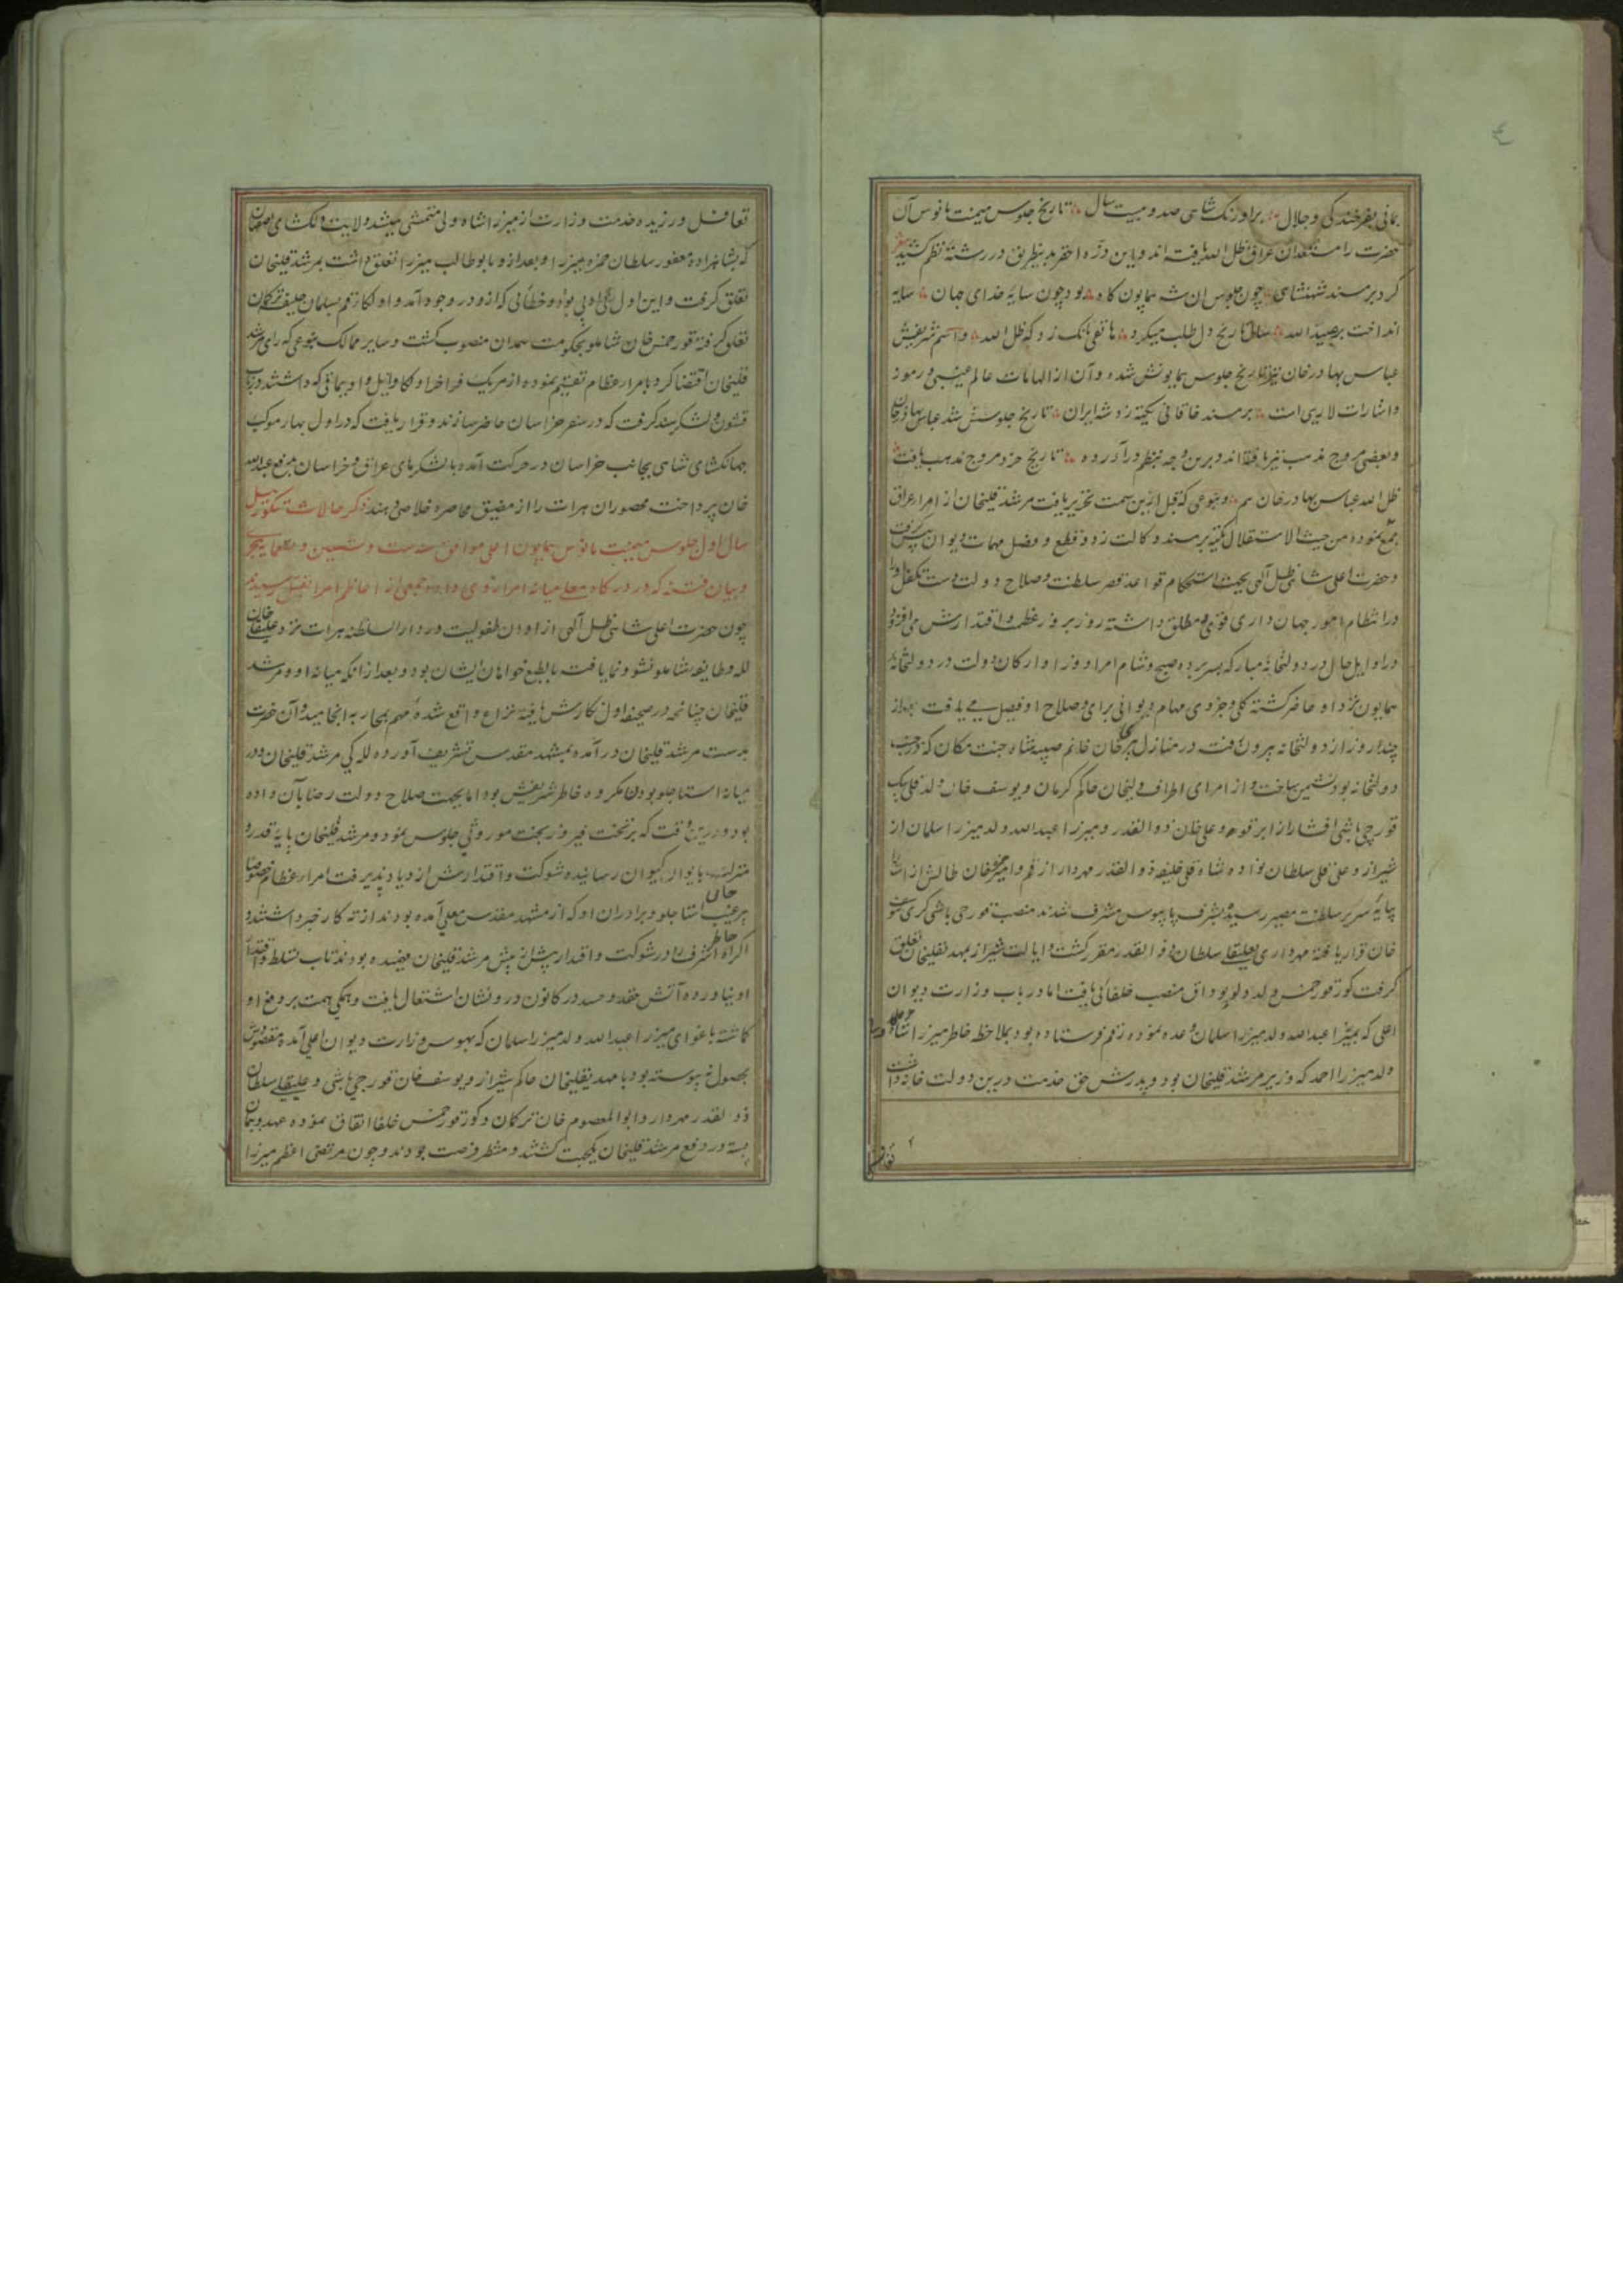 بمانی بفرخندگی و جلال براورنک شاهی صد و بیست سال تاریخ جلوس میمنت مانوس آن
حضرت را مستعدان عراق ظل الله یافته اند و این ذره احقر بدینطریق در رشتهٔ نظم کشید
کرد بر مسند شهنشاهی چون جلوس ان شه همایون کاه بود چون سایهٔ خدای جهان سایه
انداخت بر عبید الله سال تاریخ دل طلب میکرد هاتفی بانک زد که ظل الله و اسم شریفش
عباس بهادرخان نیز تاریخ جلوس همایونش شده و آن از الهامات عالم غیبی و رموز
و اشارات لاریبی است بر مسند خاقانی تکیه زد شه ایران تاریخ جلوسش شد عباس بهادرخان
و بعضی مروج مذهب نیز یافته اند و برین وجه بنظم درآورده تاریخ خرد مروج مذهب یافت
ظل الله عباس بهادرخان هم و بنوعی که قبل ازین سمت تحریر یافت مرشد قلیخان از امراء عراق
جمع نموده من حیث الاستقلال تکیه بر مسند وکالت زد و قطع و فصل مهمات دیوان پیش گرفت
و حضرت اعلی شاهی ظل آلهی بجهت استحکام قواعد قصر سلطنت و صلاح دولت دست تکفل او را
در انتظام امور جهان داری قوی و مطلق داشته روز بروز عظمت و اقتدارش می افزود
در اوایل حال در دولتخانهٔ مبارکه بسر برده صبح و شام امرا و وزرا و ارکان دولت در دولتخانهٔ
همایون نزد او حاضر کشته کلی و جزوی مهام دیوانی برای و صلاح او فیصل می یافت بعد از
چند روز از دولتخانه بیرون رفت در منازل پریخان خانم صبیه شاه جنت مکان که در جنب
دولتخانه بود نشیمن ساخت و از امرای اطراف ولیخان حاکم کرمان و یوسف خان ولد قلی بیک
قورچی باشی افشار از ابرقوه و علی خان ذوالقدر و میرزا عبدالله ولد میرزا سلمان از
شیراز و علی قلی سلطان نواده شاه قلی خلیفه ذوالقدر مهردار از قم و امیر حمزه خان طالش از استارا
بپایهٔ سریر سلطنت مصیر رسیده بشرف پایبوس مشرف شدند منصب قورچی باشی کری بیوسف
خان قرار یافته مهرداری بعلیقلی سلطان ذوالقدر مقرر کشت و ایالت شیراز بمهدیقلیخان تعلق
گرفت کور خمس ولد دلو بوداق منصب خلفائی یافت اما در باب وزارت دیوان
اعلی که بمیرزا عبدالله ولد میرزا سلمان وعده نموده رقم فرستاده بود بملاحظه خاطر میرزا شاه ولی
ولد میرزا احمد که وزیر مرشد قلیخان بود و پدرش حق خدمت درین دولت خانه داشت
تغافل
تغافل ورزیده خدمت وزارت از میرزا شاه ولی متمشی میشد ولایت دلکشای اصفهان
که بشاهزادهٔ مغفور سلطان حمزه میرزا و بعد از و بابوطالب میرزا تعلق داشت بمرشد قلیخان
تعلق گرفت و این اول بی ادبی بود و خطائی که ازو در وجود آمد و اولکا قم بسلمان خلیفه ترکمان
تعلق گرفته قورخمس خان شاملو بحکومت همدان منصوب کشت و سایر ممالک بنوعی که رای مرشد
قلیخان اقتضا کرد بامراء عظام تقسیم نموده از هریک فراخور اولکا و ایل و اویماقی که داشتند در باب
قشون و لشکر سند گرفت که در سفر خراسان حاضر سازند و قرار یافت که در اول بهار موکب
جهانکشای شاهی بجانب خراسان در حرکت آمده با لشکرهای عراق و خراسان برفع عبدالله
خان پرداخت محصوران هرات را از مضیق محاصره خلاصی دهند ذکر حالات سیچقان ئیل
سال اول جلوس میمنت مانوس همایون اعلی موافق سنهٔ ست و تسعین و تسعمایه هجری
و بیان فتنه که در درکاه معلی میانه امرا روی داده جمعی از اعاظم امرا بقتل رسیدند
چون حضرت اعلی شاهی ظل آلهی از اوان طفولیت در دار السلطنه هرات نزد علیقلیخان
لله و طایفه شاملو نشو و نما یافت بالطبع خواهان ایشان بود و بعد از آنکه میانه او و مرشد
قلیخان چنانچه در صحیفه اول نکارش یافته نزاع واقع شده مهم بمحاربه انجامید و آن حضرت
بدست مرشد قلیخان در آمده بمشهد مقدس تشریف آورده للکی مرشد قلیخان و در
میانهٔ استاجلو بودن مکروه خاطر شریفش بود اما بجهت صلاح دولت رضا بآن داده
بود و درین وقت که بر تخت فیروز بخت موروثی جلوس نمود و مرشد قلیخان پایهٔ قدر و
منزلت بایوان کیوان رسانیده شوکت و اقتدارش ازدیاد پذیرفت امراء عظام خصوصا
پیرغیب خان استاجلو و برادران او که از مشهد مقدس معلی آمده بودند از ته کار خبر داشتند و
اکراه خاطر اشرف را در شوکت و اقتدار بیش از پیش مرشد قلیخان فهمیده بودند تاب تسلط و اقتدار
او نیاورده آتش حقد و حسد در کانون درونشان اشتعال یافت و همکی همت بر رفع او
کماشته باغوای میرزا عبدالله ولد میرزا سلمان که بهوس وزارت دیوان اعلی آمده مقصودش
بحصول نپیوسته بود با مهدیقلیخان حاکم شیراز و یوسف خان قورچی باشی و علیقلی سلطان
ذوالقدر مهردار و ابوالمعصوم خان ترکمان و کور خمس خلفا اتفاق نموده عهد و پیمان
بسته در دفع مرشد قلیخان یکجهت کشتند و منتظر فرصت بودند و چون مرتضی اعظم میرزا